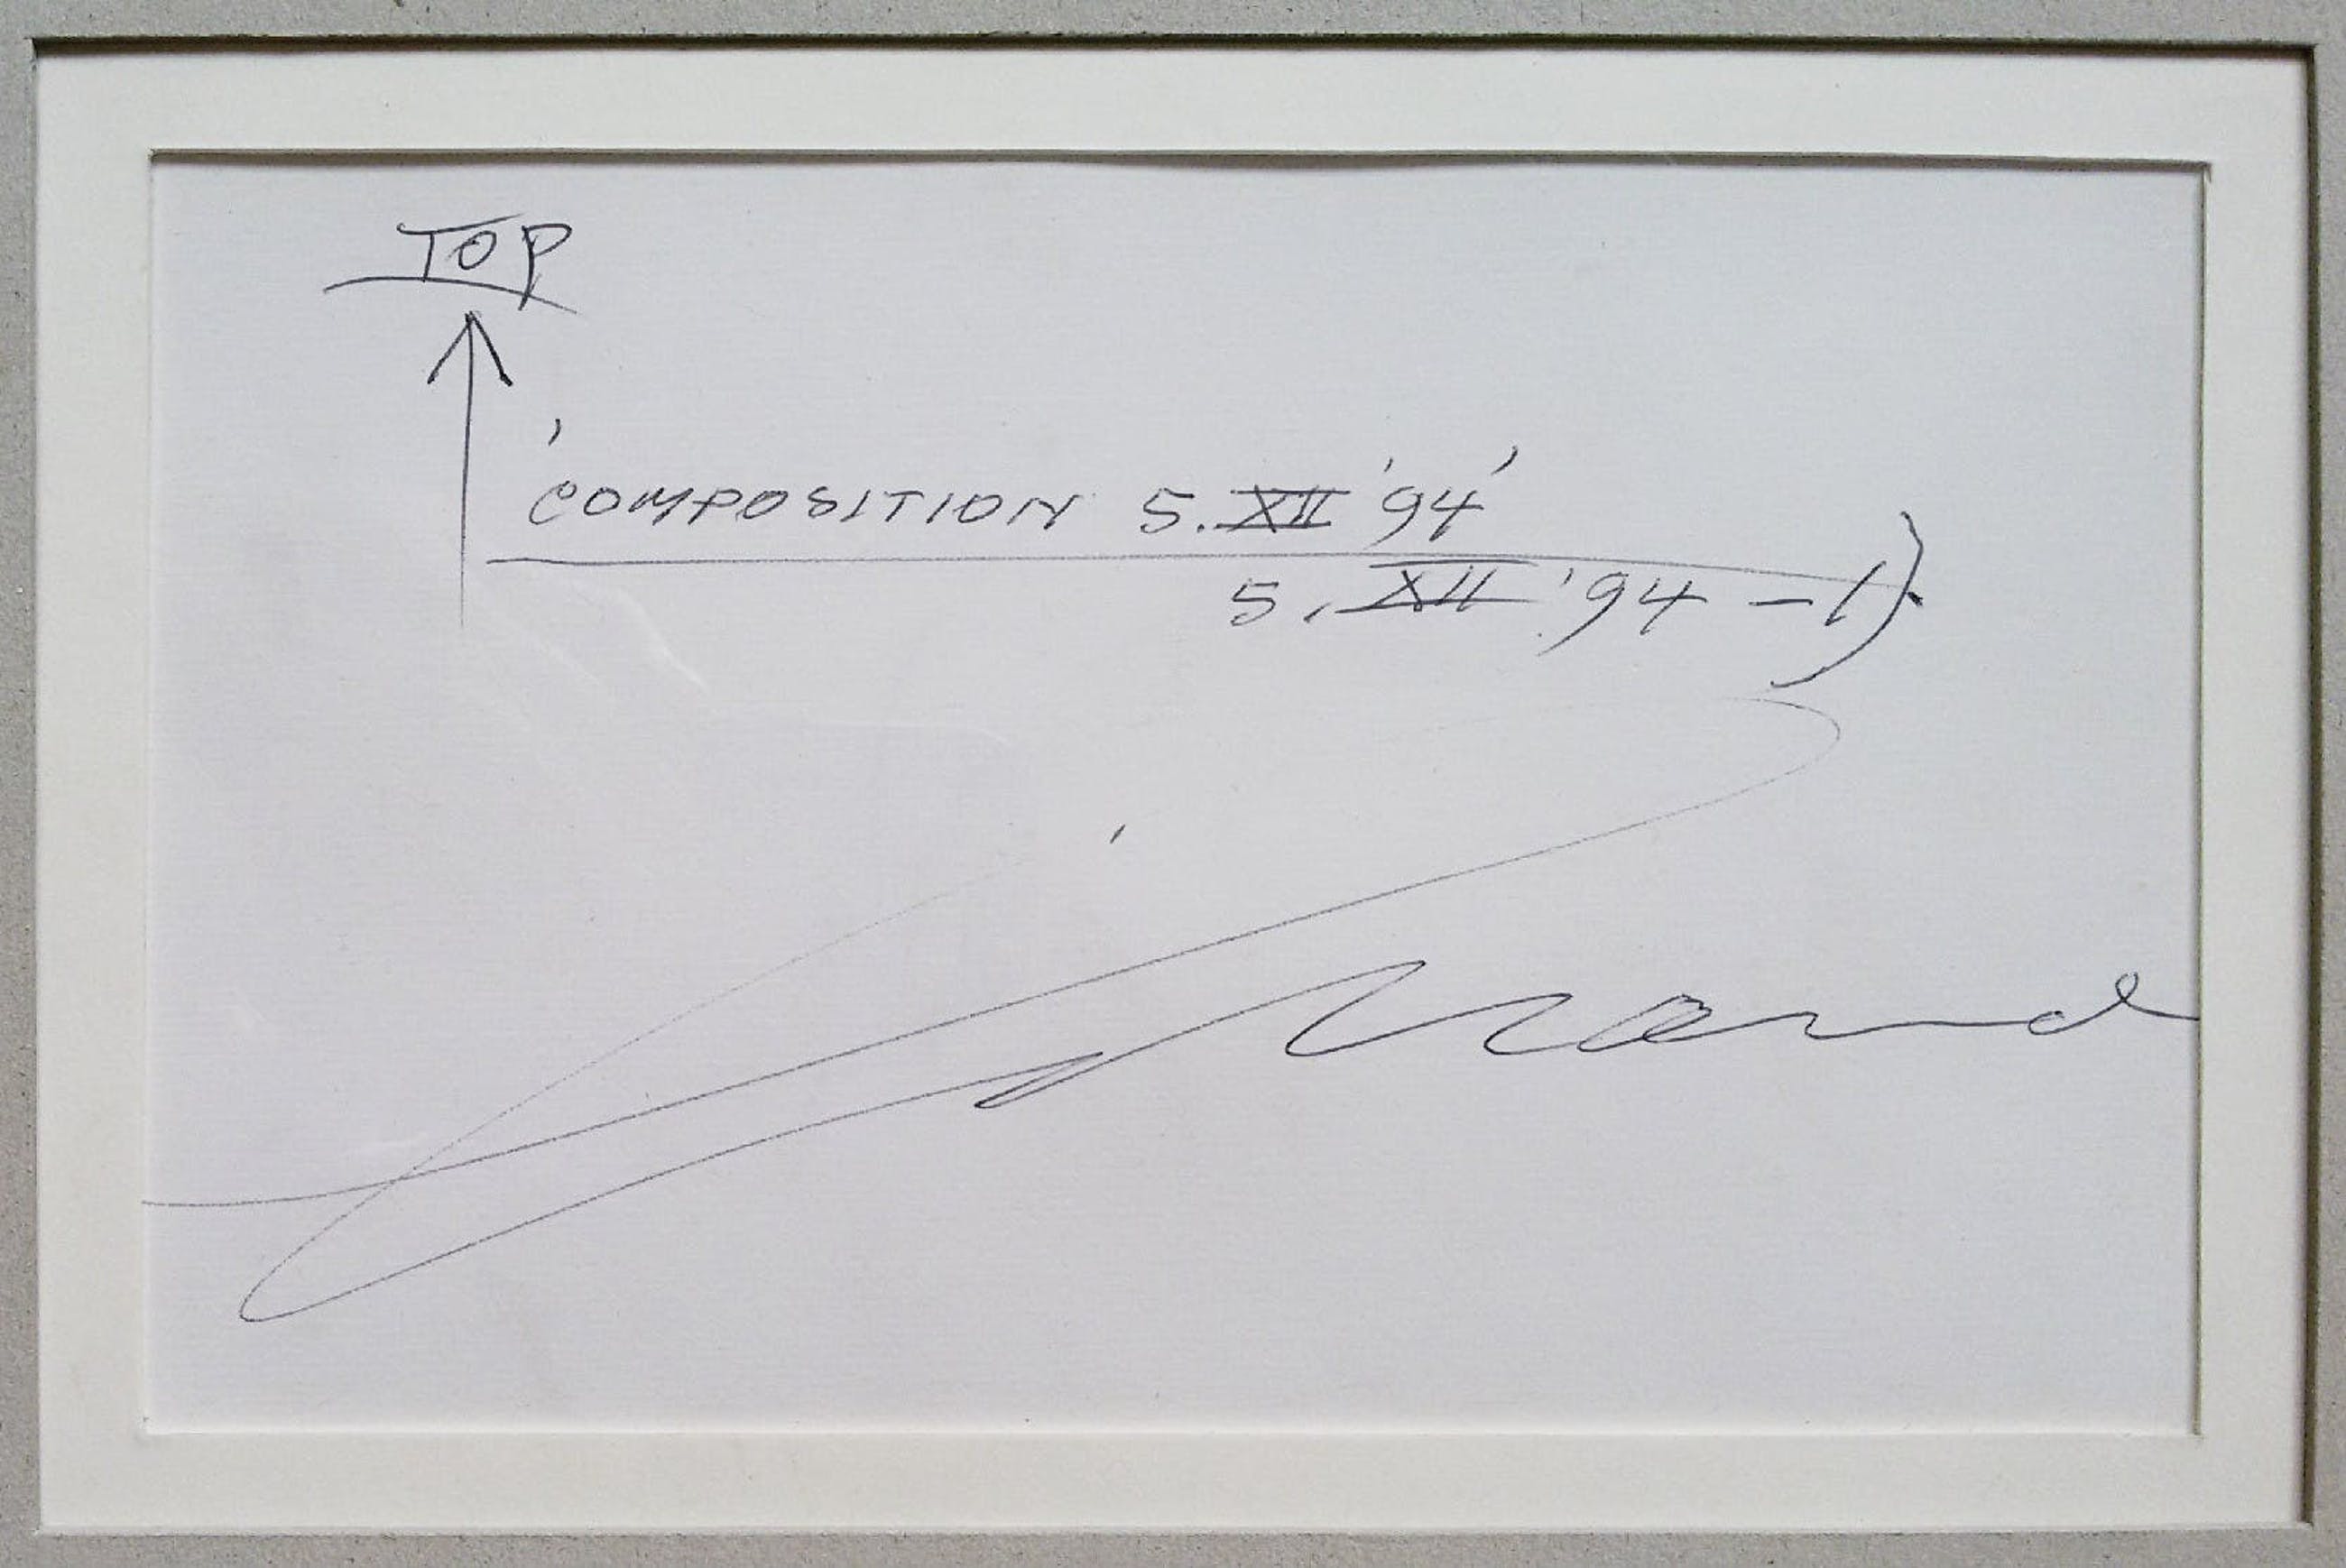 TOP
'COMPOSITION 5.XII '94'
5.XII '94 – 1)